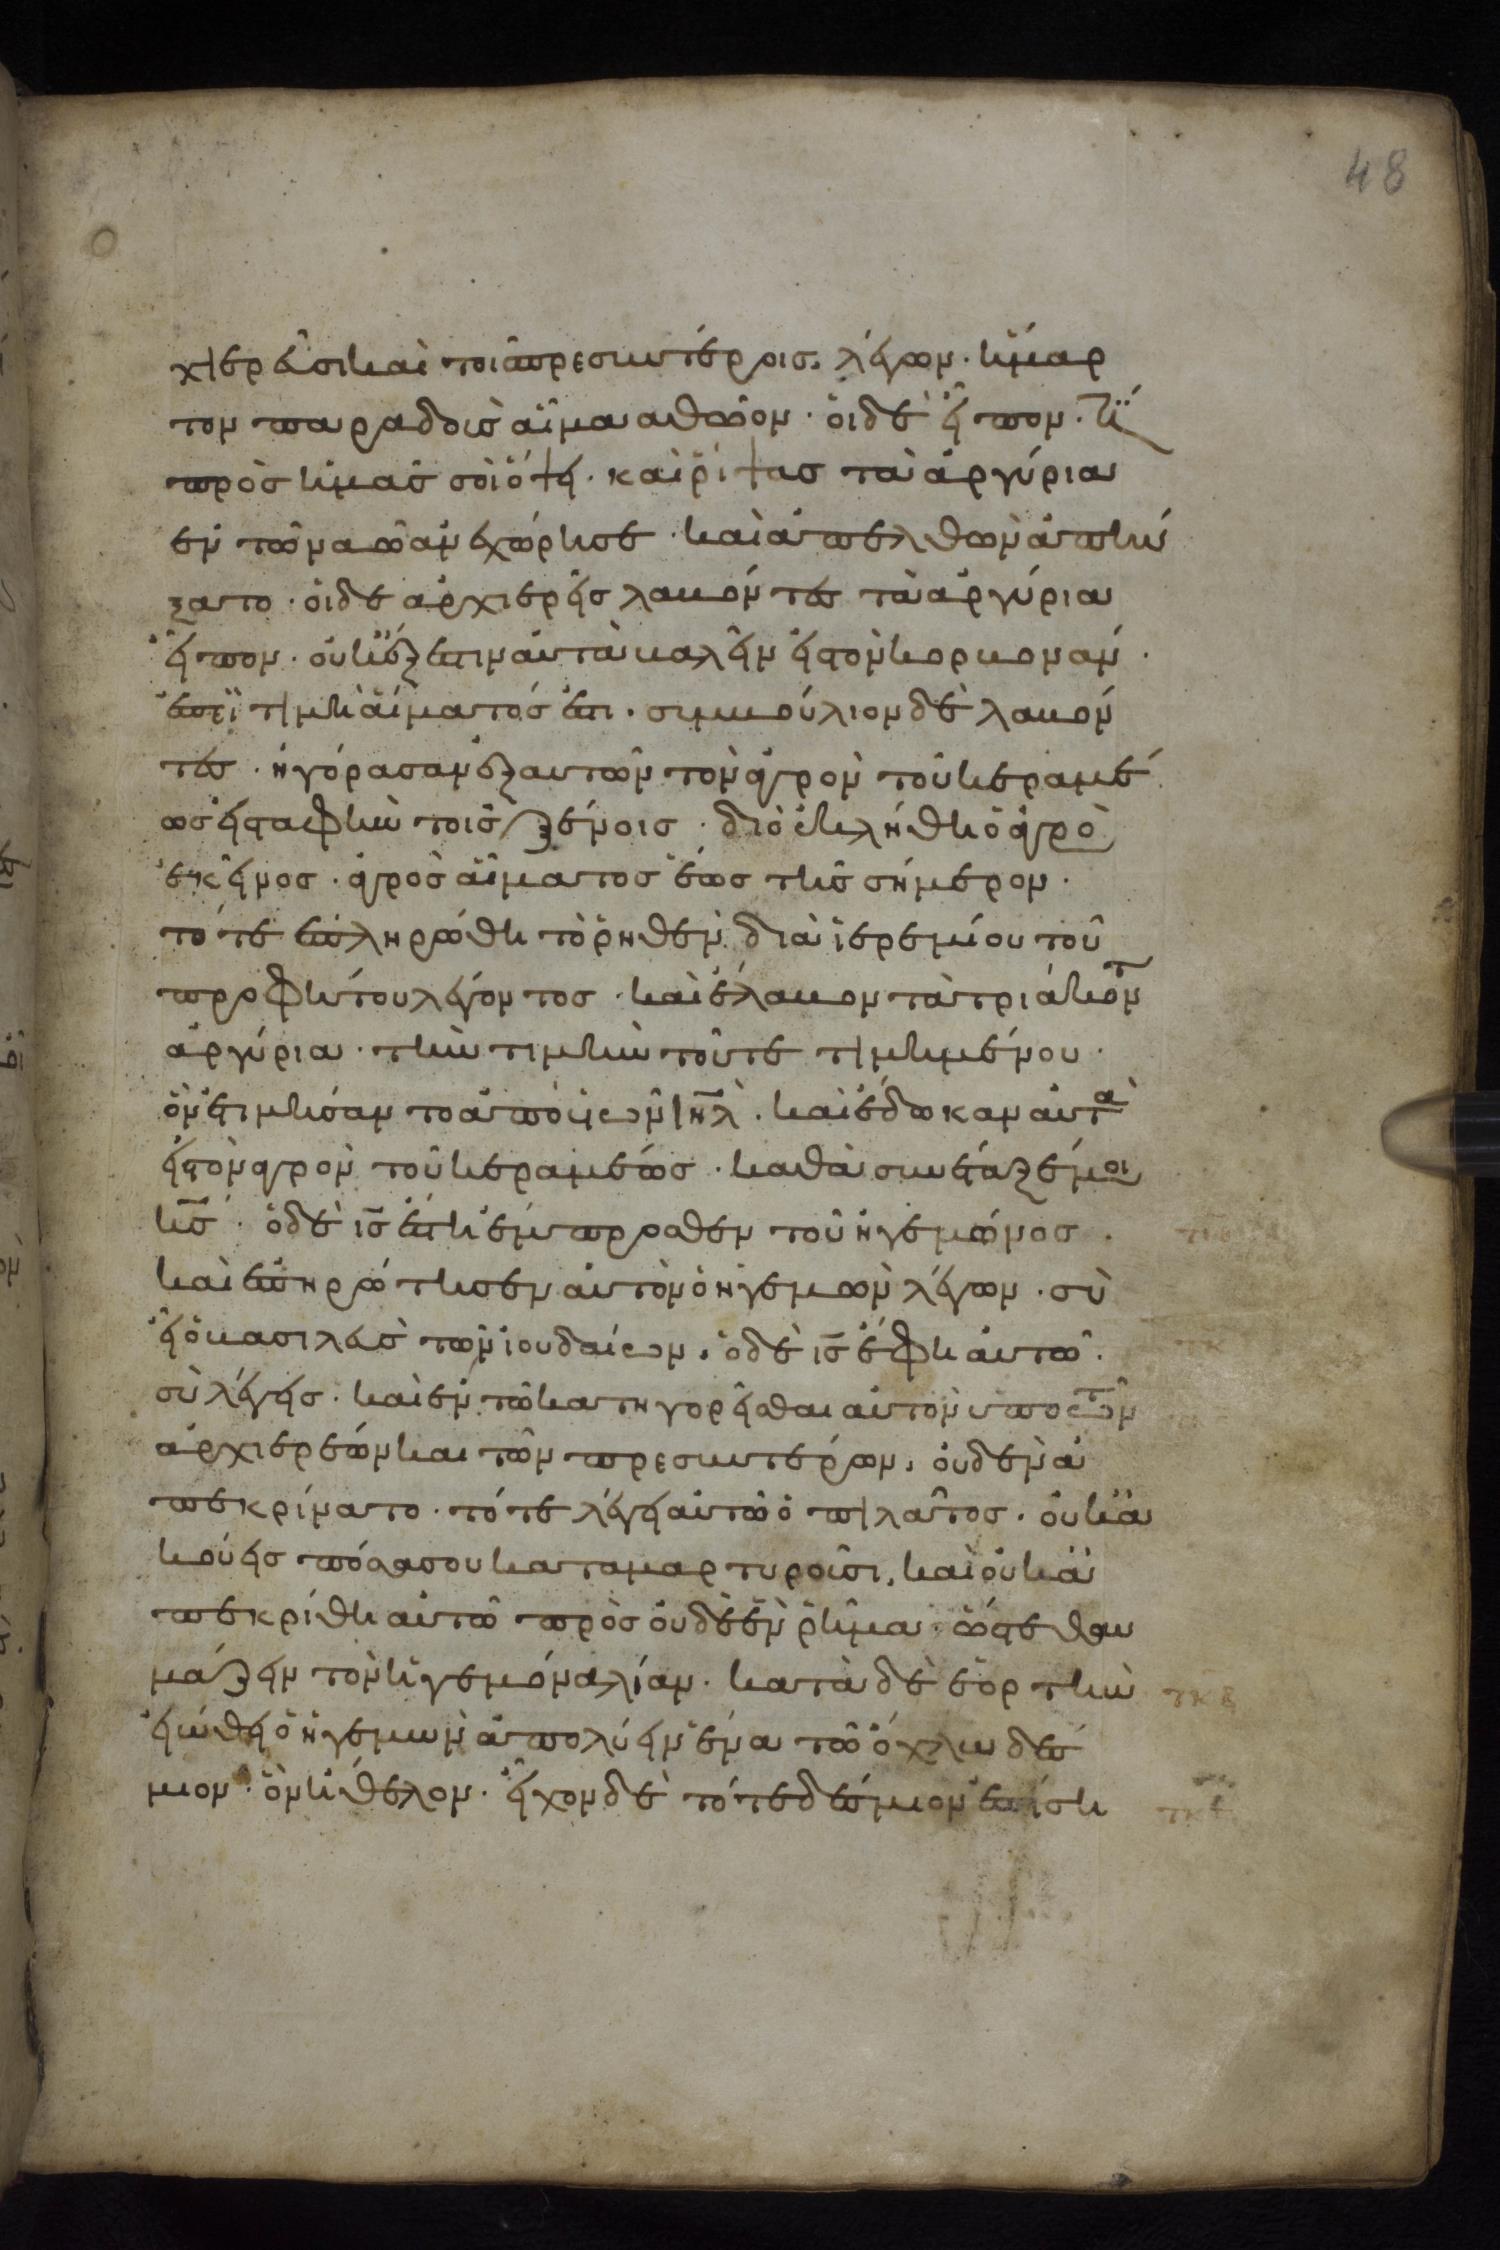 48
χιερεῦσι καὶ τοῖς πρεσβυτέροις. λέγων· ἥμαρ
τον παραδοὺς αἷμα ἀθῶον· οἱ δὲ εἶπον· τί
πρὸς ἡμᾶς σὺ ὄψει· καὶ ῥίψας τὰ ἀργύρια
ἐν τῶ ναῶ ἀνεχώρησε· καὶ ἀπελθὼν ἀπήγ
ξατο· οἱ δὲ ἀρχιερεῖς λαβόντες τὰ ἀργύρια
εἶπον· οὐκ ἔξεστιν αὐτὰ βαλεῖν εἰς τὸν κορβονᾶν·
ἐπεὶ τιμὴ αἵματός ἐστι· συμβούλιον δὲ λαβόν
τες· ἠγόρασαν ἐξ αὐτῶν τὸν ἀγρὸν τοῦ κεραμέ
ως εἰς ταφὴν τοῖς ξένοις· διὸ ἐκλήθη ὁ ἀγρὸ
ἐκεῖνος· ἀγρὸς αἵματος ἕως τῆς σήμερον·
τότε ἐπληρώθη τὸ ῥηθὲν διὰ ἱερεμίου τοῦ
προφήτου λέγοντος· καὶ ἔλαβον τὰ τριάκοντ
ἀργύρια· τὴν τιμὴν τοῦ τετιμημένου·
ὃν ἐτιμήσαντο ἀπὸ υἱῶν ιηλ· καὶ ἔδωκαν αὐτὰ
εἰς τὸν ἀγρὸν τοῦ κεραμέως· καθὰ συνέταξέ μοι
κς· ὁ δὲ ις ἔστη ἔμπροσθεν τοῦ ἡγεμόνος·
καὶ ἐπηρώτησεν αὐτὸν ὁ ἡγεμὼν λέγων· σὺ
εἶ ὁ βασιλεὺς τῶν ἰουδαίων. ὁ δὲ ις ἔφη αὐτῶ·
σὺ λέγεις· καὶ ἐν τῶ κατηγορεῖσθαι αὐτὸν ὑπὸ τῶν
ἀρχιερέων καὶ τῶν πρεσβυτέρων, οὐδὲν ἀ
πεκρίνατο· τότε λέγει αὐτῶ ὁ πιλάτος· οὐκ ἀ
κούεις πόσα σου καταμαρτυροῦσι, καὶ οὐκ ἀ
πεκρίθη αὐτῶ πρὸς οὐδὲ ἓν ῥῆμα· ὥστε θαυ
μάζειν τὸν ἡγεμόνα λίαν· κατὰ δὲ ἑορτὴν
εἰώθει ὁ ἡγεμὼν ἀπολύειν ἕνα τῶ ὄχλω δέσ
μιον· ὃν ἤθελον· εἶχον δὲ τότε δέσμιον ἐπίση